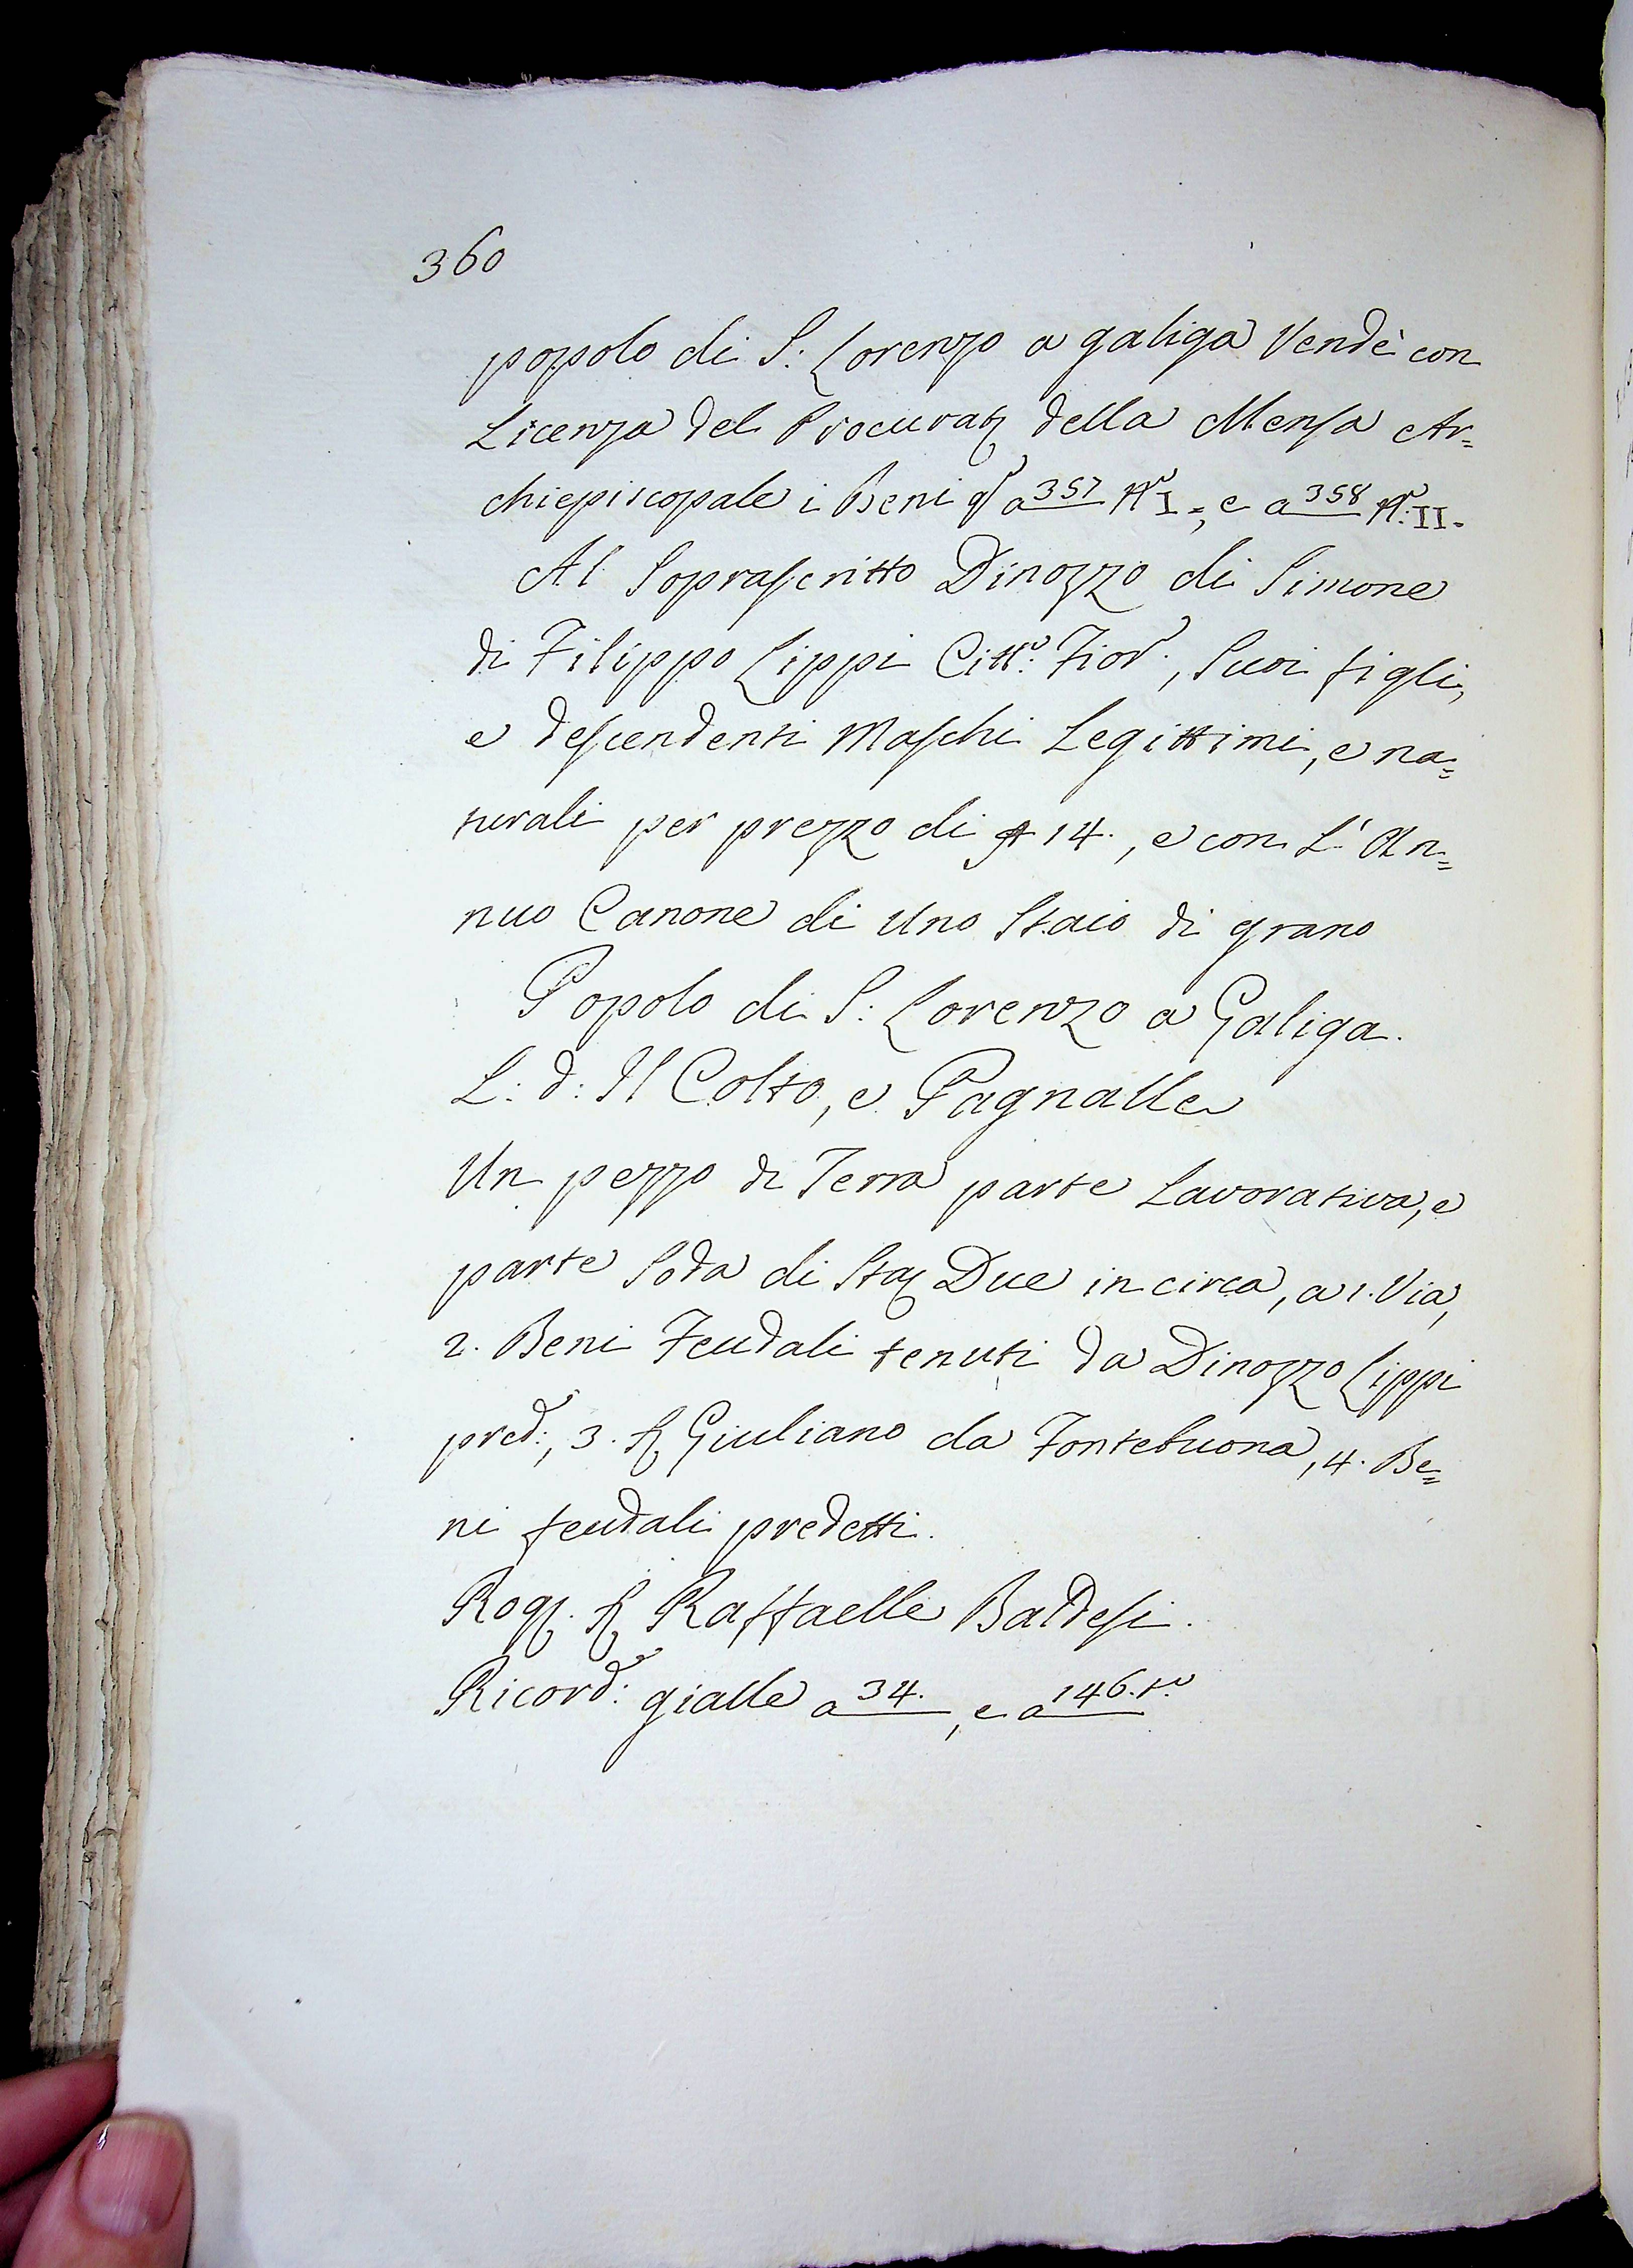 360
popolo di S: Lorenzo a galiga Vendè con
Licenza del Procurat: della Mensa Ar=
chiepiscopale i Beni a 357 N.º I=, e a 358 N.º II.
Al Soprascritto Dinozzo di Simone
di Filippo Lippi Citt.º: Fior.º, Suoi figli,
e descendenti Maschi Legittimi, e na=
turali per prezzo di 14., e con L' An=
nuo Canone di Uno Staio di grano
Popolo di S: Lorenzo a Galiga.
L: d: Il Colto, e Pagnalle
Un pezzo di Terra parte Lavorativa, e
parte Soda di Sta: Due in circa, a 1. Via,
2. Beni Feudali tenuti da Dinozzo Lippi
pred:, 3. Giuliano da Fontebuona, 4. Be=
ni feudali predetti.
Rog: Raffaelle Baldesi.
Ricord: gialle a 34., e a 146. t.º